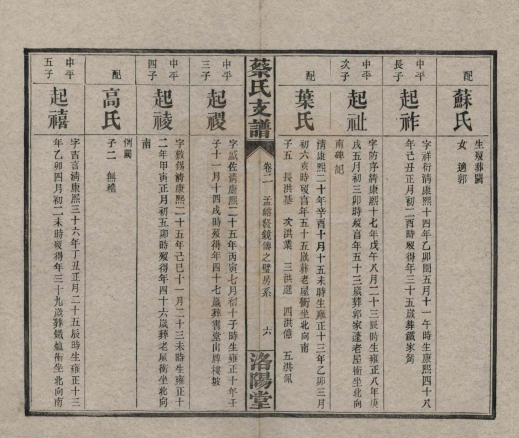 配
蘇氏
生歿葬闕
女 適郭
中平
長子
起祚
字祥衍清康熙十四年乙卯閏五月十一午時生康熙四十八
年己丑正月初二酉時歿得年三十五歲葬鐵家崙
中平
次子
起祉
字的亭清康熙十七年戊午八月二十三辰時生雍正八年庚
戌五月初三卯時歿得年五十三歲葬郭家蓬老屋衝坐北向
南碑記
配
葉氏
清康熙二十年辛酉十月十五未時生雍正十三年乙卯三月
初六亥時歿得年五十五歲葬老屋衝坐北向南
子五 長洪基 次洪業 三洪進 四洪億 五洪佩
蔡氏支譜
卷二 孟 鏡傳之璧房系
六
洛陽堂
中平
三子
起禝
字 佐清康熙二十五年丙寅七月初十子時生雍正十年壬
子十一月十四戌時歿得年四十七歲葬書堂山牌樓坡
中平
四子
起祾
字 清康熙二十五年己巳十一月二十三未時生雍正十
二年甲寅正月初五卯時歿得年四十六歲葬老屋衝坐北向
南
配
高氏
例闕
子二 無 
中平
五子
起禧
字吉言清康熙三十六年丁丑正月二日時生雍正十三
年乙卯四月初二未時歿得年三十九歲葬鐵爐衝坐北向南